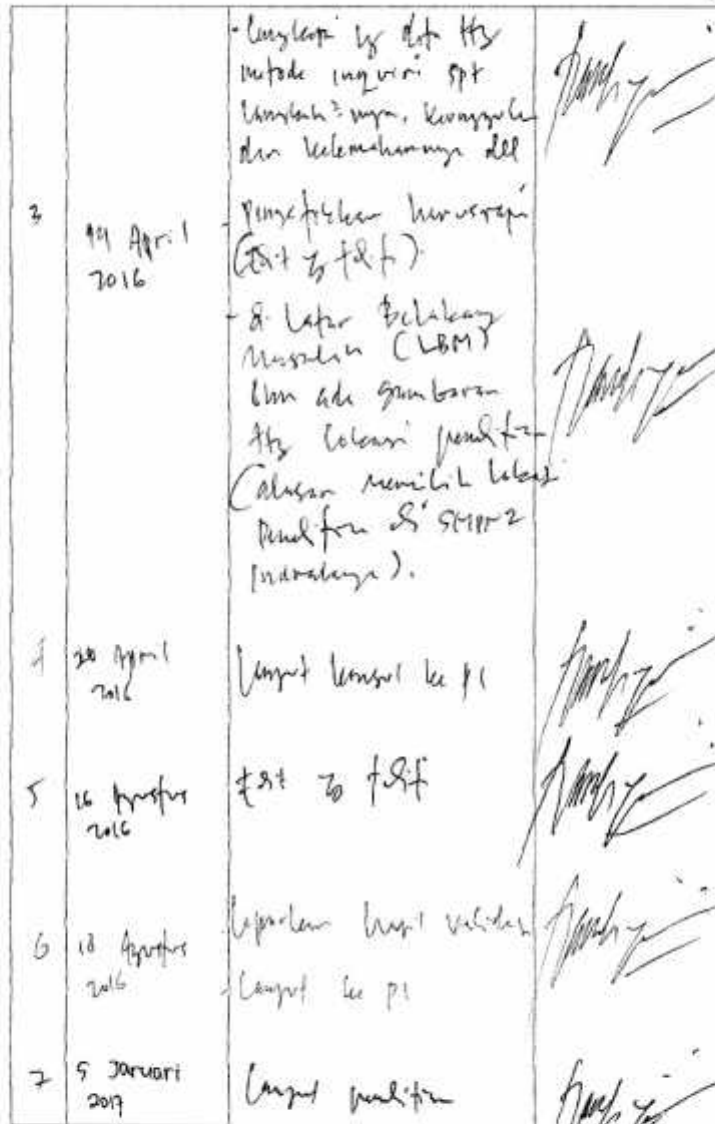 - Lengkapi dg data ttg
metode inquiri spt
langkah²nya, keunggulan
dan kelemahannya dll
3
14 April
2016
- Pengetikkan harus rapi
(Edit dg teliti).
- Di Latar Belakang
Masalah (LBM)
blm ada gambaran
ttg lokasi penelitian
(alasan memilih lokasi
Penelitian di SMPN 2
Indralaya).
4
20 April
2016
Lanjut konsul ke p1
5
16 Agustus
2016
Edit dg teliti
6
18 Agustus
2016
Laporkan hasil validasi
Lanjut ke p1
7
5 Januari
2017
Lanjut penelitian